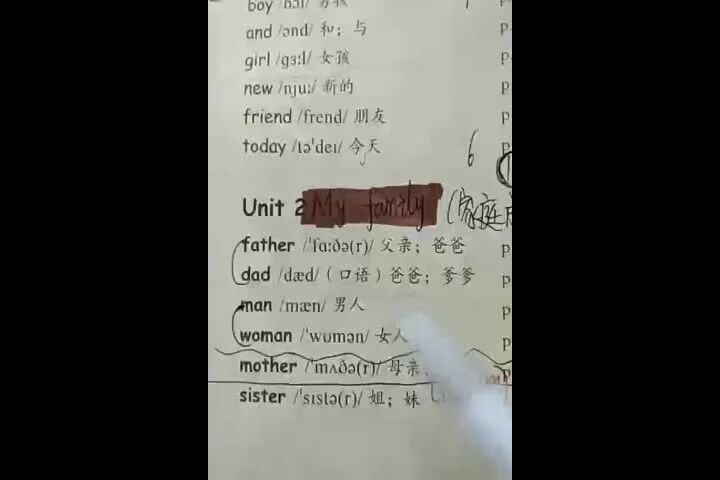 boy /bɔɪ/ 男孩
and /ənd/ 和；与
girl /gɜːl/ 女孩
new /njuː/ 新的
friend /frend/ 朋友
today /tə'deɪ/ 今天
6
Unit 2 My family (家庭
father /'fɑːðə(r)/ 父亲；爸爸
dad /dæd/（口语）爸爸；爹爹
man /mæn/ 男人
woman /'wʊmən/ 女人
mother /'mʌðə(r)/ 母亲
sister /'sɪstə(r)/ 姐；妹